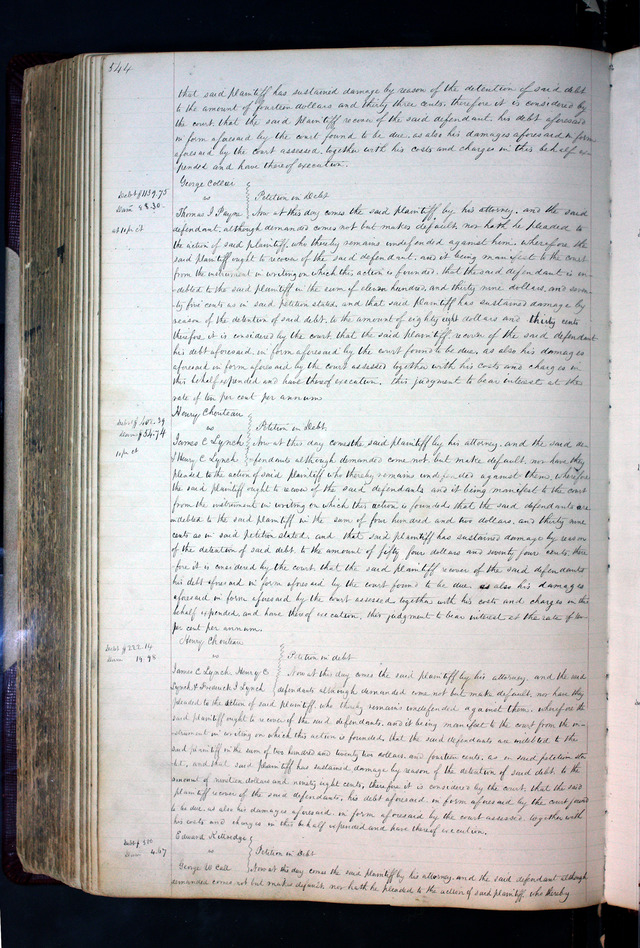 544
that said plaintiff has sustained damage by reason of the detention of said debt
to the amount of fourteen dollars and thirty three cents, therefore it is considered by
the court that the said plaintiff recover of the said defendant, his debt aforesaid
in form aforesaid by the court found to be due, as also his damages aforesaid in form
aforesaid by the court assessed, together with his costs and charges in this behalf ex-
pended and have thereof execution.
George Collier
Debt $1139.75
vs
Petition in Debt
Dam $88.30
Thomas J Payne
Now at this day comes the said plaintiff by his attorney, and the said
at 10 p ct
defendant, although demanded comes not but makes default, nor hath he pleaded to
the action of said plaintiff, who thereby remains undefended against him, wherefore the
said plaintiff ought to recover of the said defendant, and it being manifest to the court
from the instrument in writing on which this action is founded, that the said defendant is in-
debted to the said plaintiff in the sum of eleven hundred, and thirty nine dollars, and seven-
ty five cents as in said petition stated, and that said plaintiff has sustained damage by
reason of the detention of said debt, to the amount of eighty eight dollars and thirty cents
therefore, it is considered by the court that the said plaintiff recover of the said defendant
his debt aforesaid, in form aforesaid by the court found to be due, as also his damages
aforesaid in form aforesaid by the court assessed together with his costs and charges in
this behalf expended and have thereof execution, this judgment to bear interest at the
rate of ten per cent per annum
Henry Chouteau
Debt $402.39
vs
Petition in Debt
Dam $54.74
James C Lynch
Now at this day comes the said plaintiff by his attorney, and the said de-
10 p ct
& Henry C Lynch
fendants although demanded come not, but make default, nor have they
pleaded to the action of said plaintiff who thereby remains undefended against them, wherefore
the said plaintiff ought to recover of the said defendants and it being manifest to the court
from the instrument in writing on which this action is founded that the said defendants are
indebted to the said plaintiff in the sum of four hundred and two dollars, and thirty nine
cents as in said petition stated, and that said plaintiff has sustained damage by reason
of the detention of said debt, to the amount of fifty four dollars and seventy four cents, there
fore it is considered by the court that the said plaintiff recover of the said defendants
his debt aforesaid in form aforesaid by the court found to be due as also his damages
aforesaid in form aforesaid by the court assessed together with his costs and charges in this
behalf expended, and have thereof execution, this judgment to bear interest at the rate of ten
per cent per annum.
Henry Chouteau
Debt $222.14
vs
Petition in debt
Dam 19.98
James C Lynch Henry C
Now at this day comes the said plaintiff by his attorney, and the said
Lynch & Frederick J Lynch
defendants although demanded come not but make default, nor have they
pleaded to the action of said plaintiff, who thereby remains undefended against them, wherefore the
said plaintiff ought to recover of the said defendants, and it being manifest to the court from the in-
strument in writing on which this action is founded, that the said defendants are indebted to the
said plaintiff in the sum of two hundred and twenty two dollars, and fourteen cents, as in said petition sta
ted, and that said plaintiff has sustained damage by reason of the detention of said debt, to the
amount of nineteen dollars and ninety eight cents, therefore it is considered by the court, that the said
plaintiff recover of the said defendants, his debt aforesaid, in form aforesaid by the court found
to be due, as also his damages aforesaid, in form aforesaid by the court assessed, together with
his costs and charges in this behalf expended and have thereof execution.
Edward Kitteridge
vs
Petition in Debt
Dam 4.67
George W Call
Now at this day comes the said plaintiff by his attorney, and the said defendant although
demanded comes not but makes default, nor hath he pleaded to the action of said plaintiff, who thereby